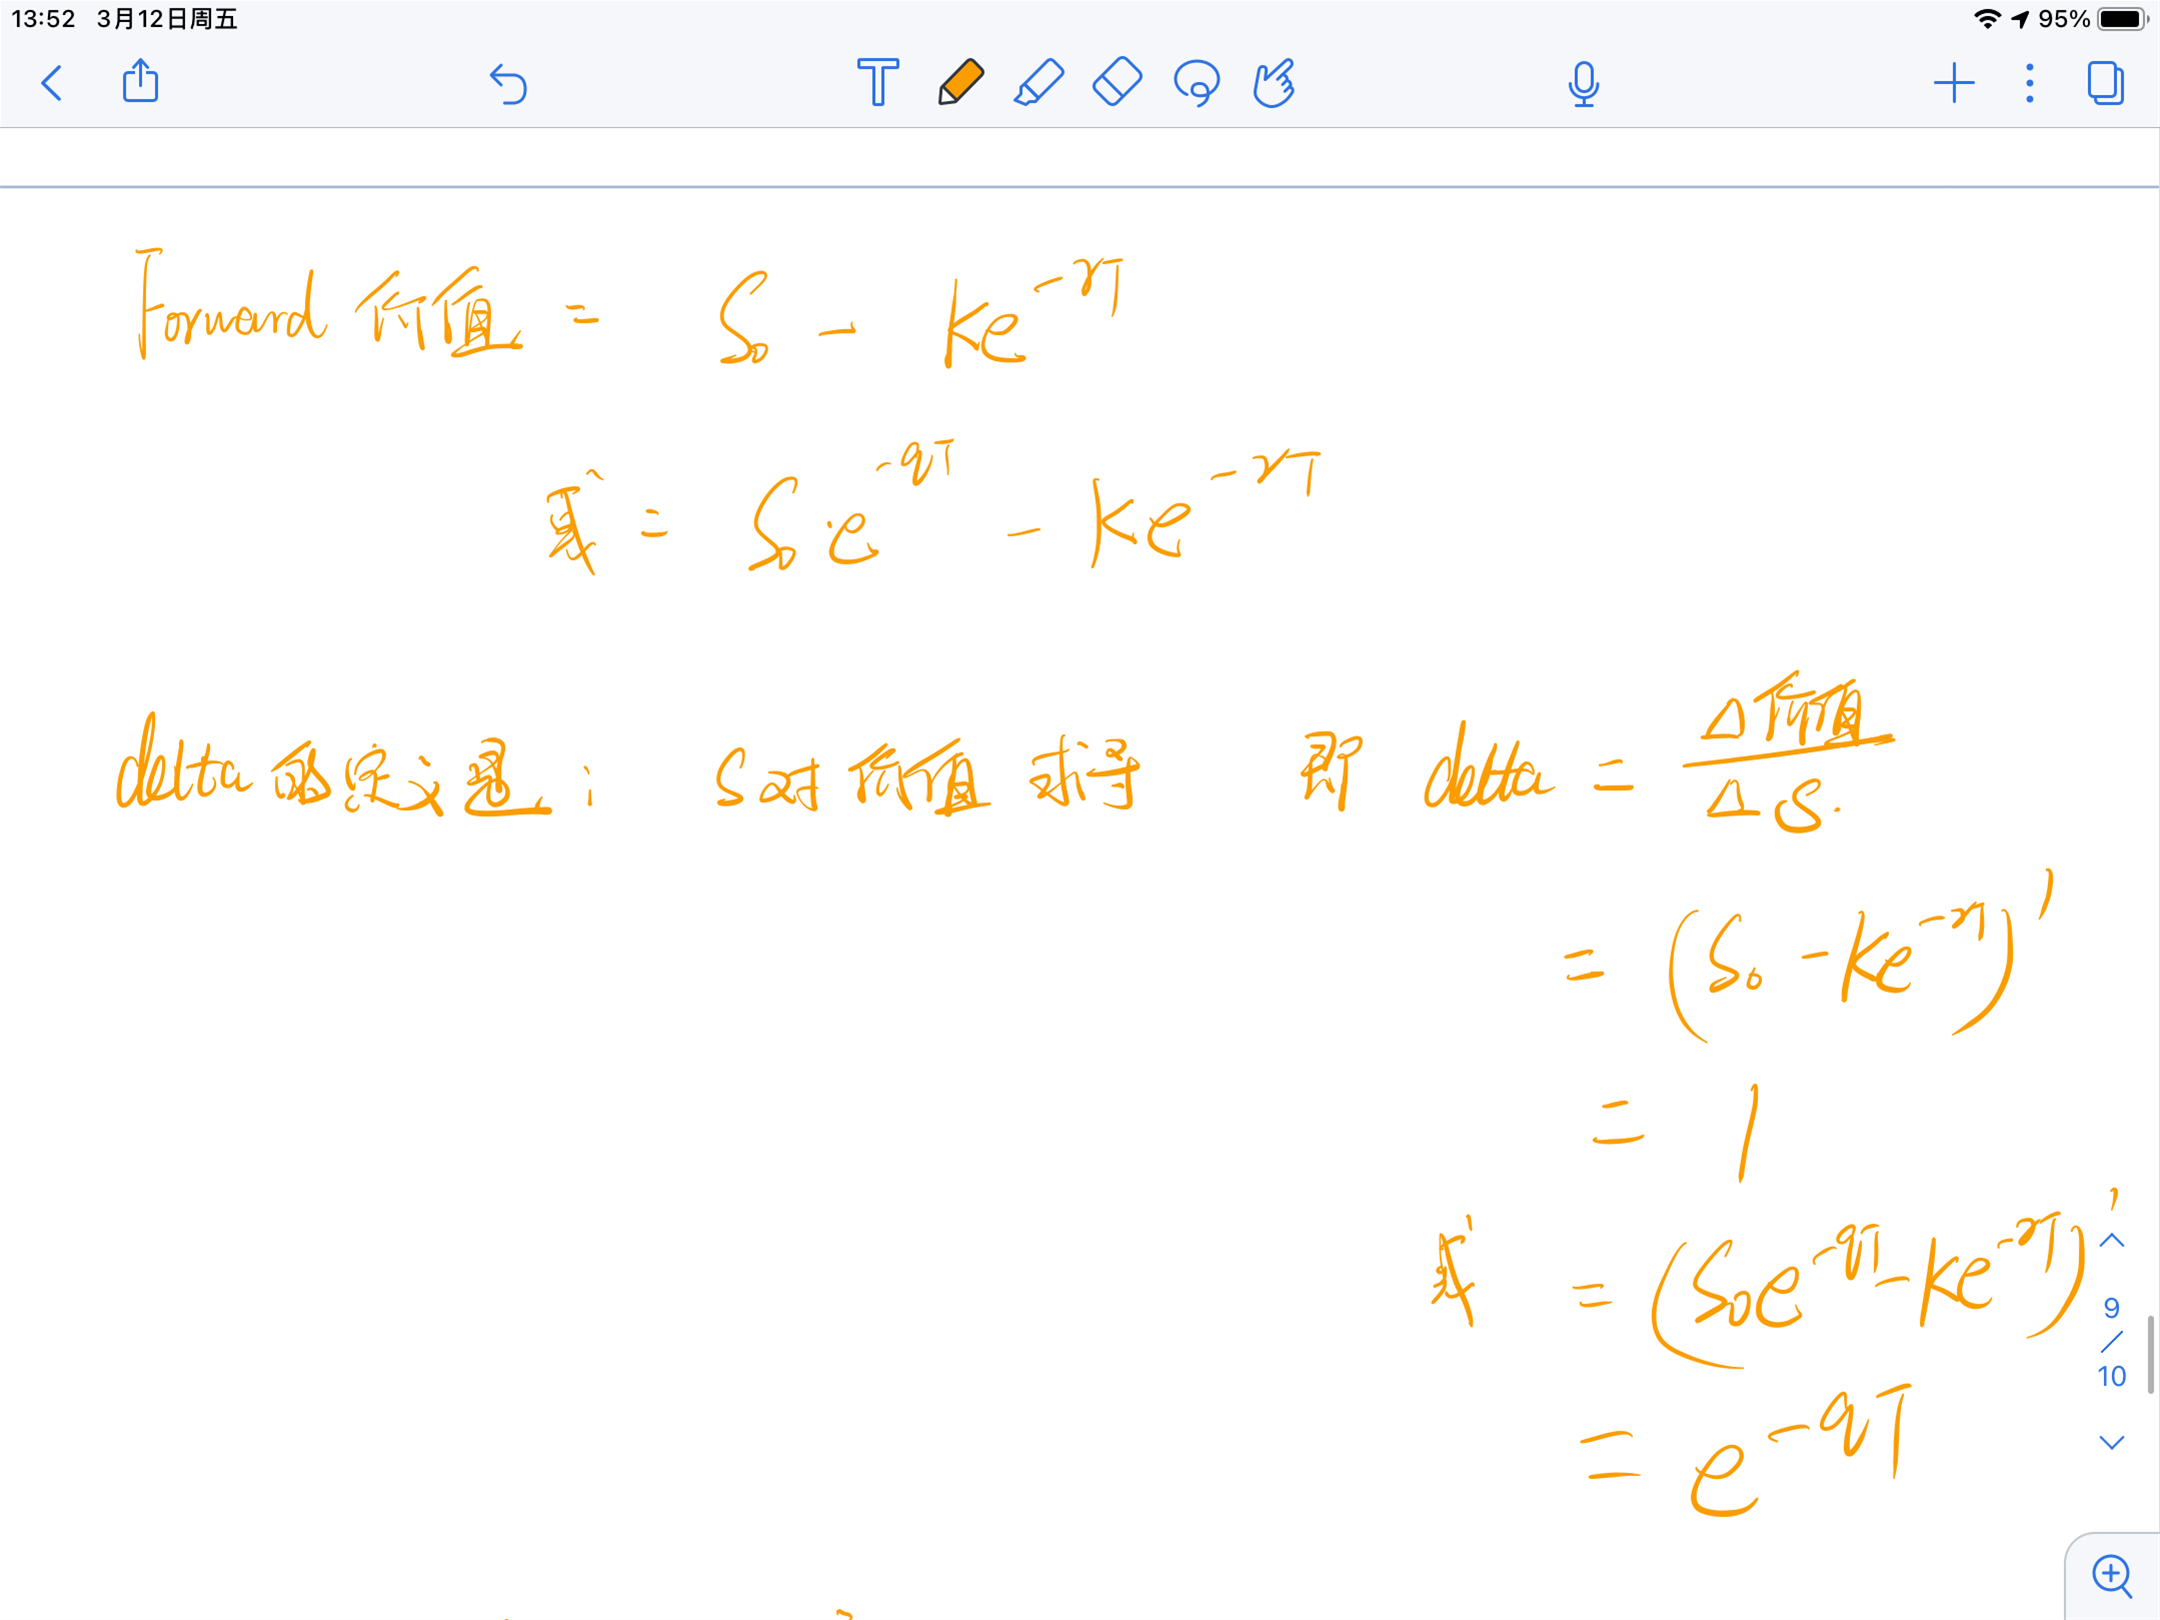 13:52 3月12日周五 95%
Forward 价值 = S₀ - Ke^{-rT}
或 = S₀e^{-qT} - Ke^{-rT}
delta 的定义是: S对价值求导 即 delta = Δ价值/ΔS
= (S₀ - Ke^{-rT})'
= 1
或 = (S₀e^{-qT} - Ke^{-rT})'
= e^{-qT}
9
/
10